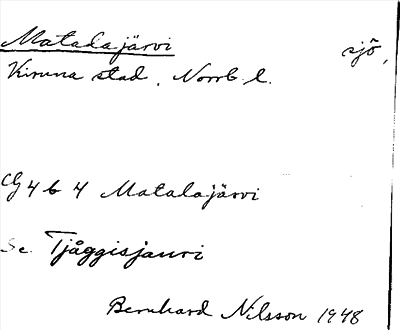 Matadajärvi sjö,
Kiruna stad, Norrb. l.
CG 4 b 4 Matalajärvi
Se Tjåggisjauri
Bernhard Nilsson 1948